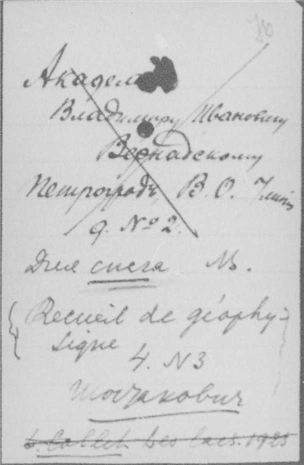 Академ
Владимиру Ивановичу
Вернадскому
Петроградъ, В.О. 7 линія
д. № 2.
Для снега М.
Recueil de géophy-
sique
4. N 3
Шостакович
L. Collet Les lacs. 1925